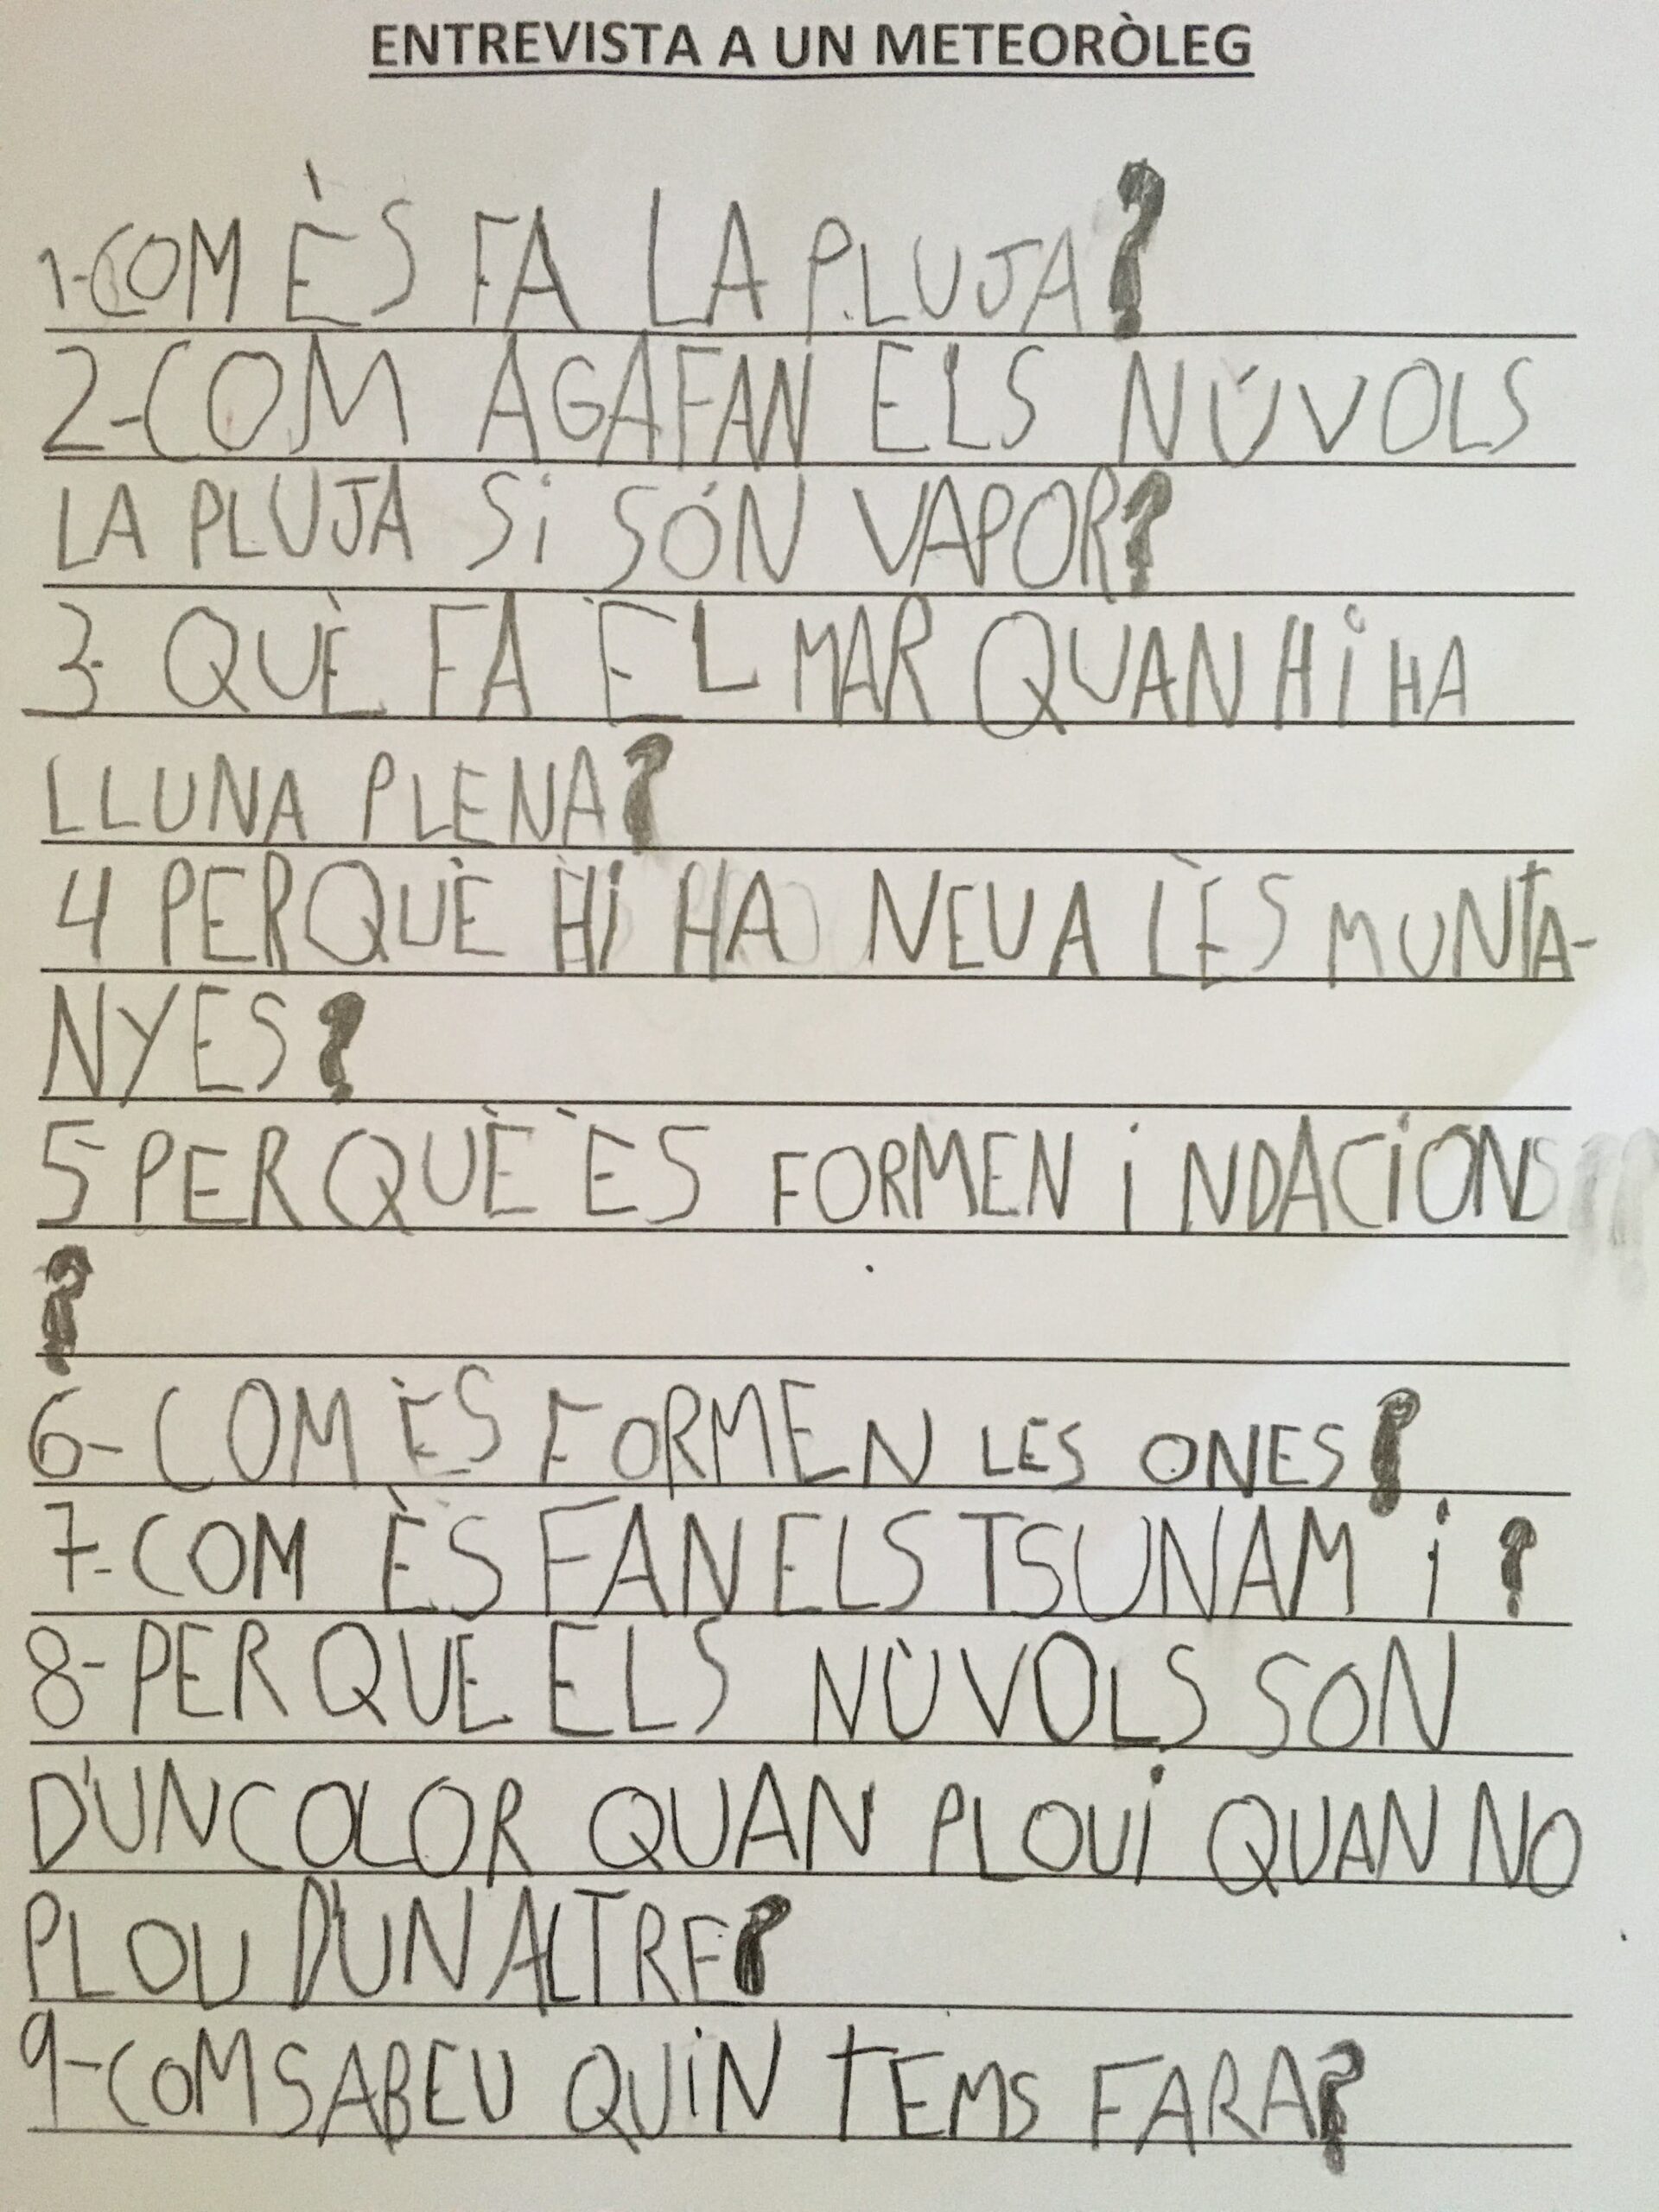 ENTREVISTA A UN METEORÒLEG
1-COM ÈS FA LA PLUJA?
2-COM AGAFAN ELS NÚVOLS
LA PLUJA Si SÓN VAPOR?
3- QUÈ FA ÈL MAR QUAN Hi HA
LLUNA PLENA?
4 PERQUÈ Hi HA NEU A LÈS MUNTA-
NYES?
5 PER QUÈ ÈS FORMEN iNDACiONS
?
6- COM ÈS FORMEN LES ONES?
7-COM ÈS FAN ELS TSUNAMi?
8- PER QUE ELS NÙVOLS SON
D'UN COLOR QUAN PLOU i QUAN NO
PLOU D'UN ALTRE?
9-COM SABEU QUiN TEMS FARA?